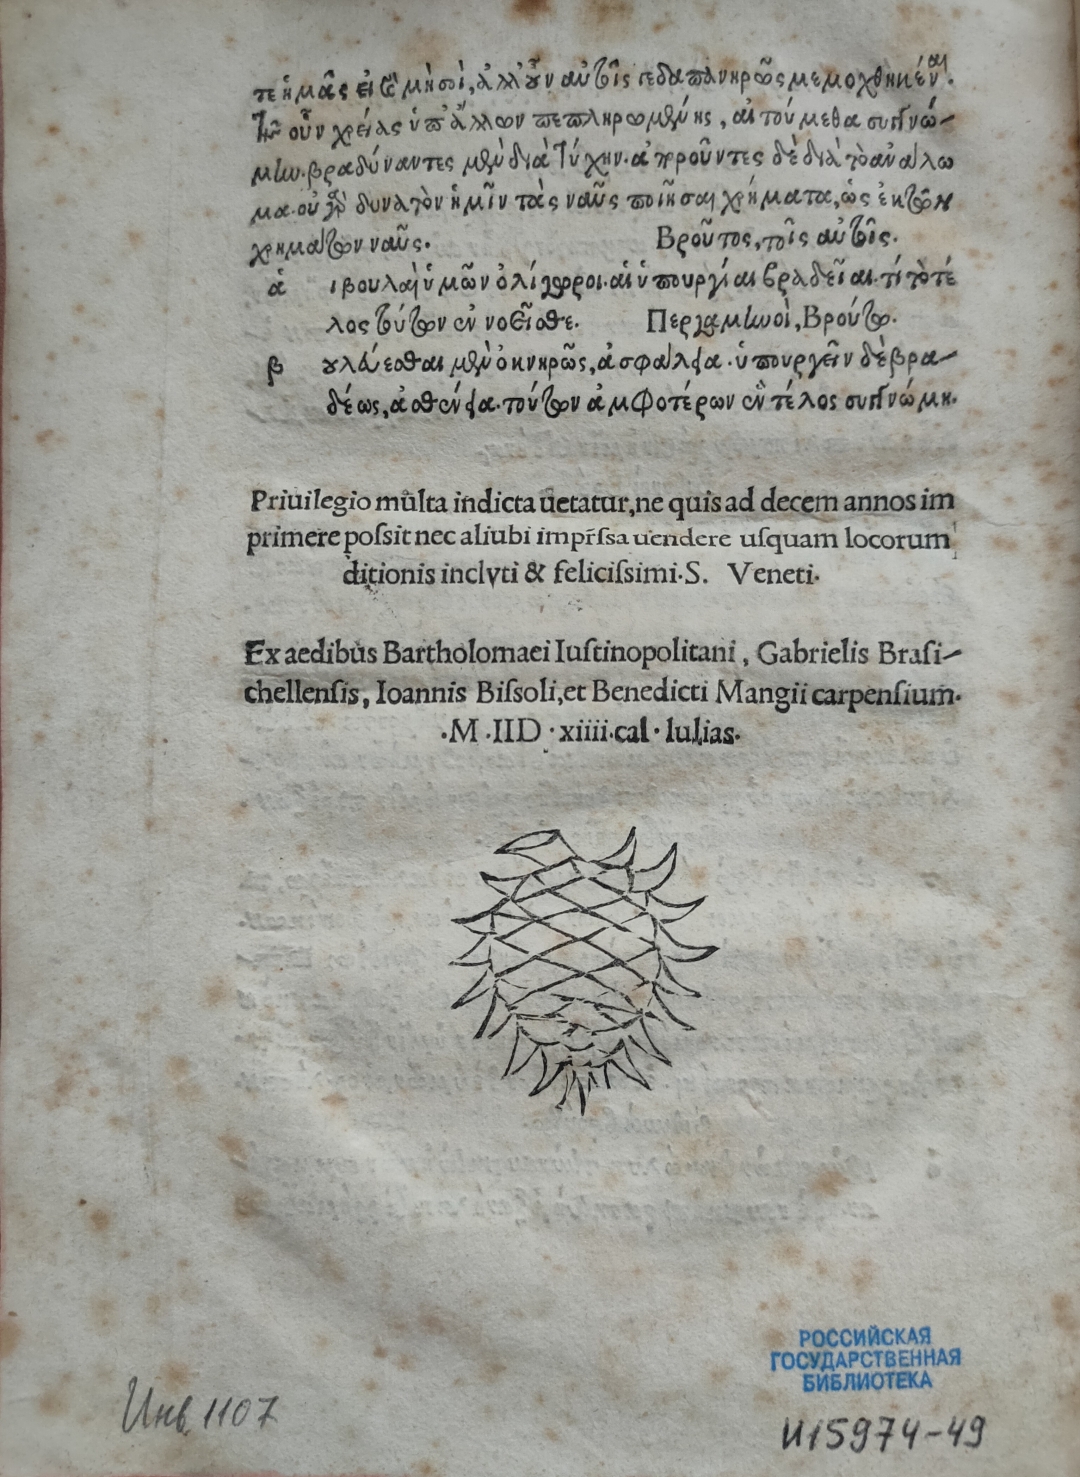 τε ἡμᾶς εἰ καὶ μὴ σοὶ, ἀλλ' οὖν αὐτοῖς γε δαπανηρῶς μεμοχθηκέναι.
τῶν οὖν χρείας ὑπ' ἄλλων πεπληρωμένης, αἰτούμεθα συγγνώ-
μην. βραδύναντες μὲν διὰ τύχην. ἀποροῦντες δὲ διὰ τὸ ἀνάλω
μα. οὐ γὰρ δυνατὸν ἡμῖν τὰς ναῦς ποιῆσαι χρήματα, ὡς ἐκ τῶν
χρημάτων ναῦς. Βροῦτος, τοῖς αὐτοῖς.
ἁ ι βουλαὶ ὑμῶν ὀλίγωροι. αἱ ὑπουργίαι βραδεῖαι. τί τὸ τέ
λος τούτων ἐννοεῖσθε. Περγαμηνοὶ, Βρούτῳ.
β ουλεύεσθαι μὲν ὀκνηρῶς, ἀσφάλεια. ὑπουργεῖν δὲ βρα-
δέως, ἀσθένεια. τούτων ἀμφοτέρων ἓν τέλος συγγνώμη.
Priuilegio multa indicta uetatur, ne quis ad decem annos im
primere poſsit nec aliubi imprſsa uendere uſquam locorum
ditionis inclyti & feliciſsimi.S. Veneti.
Ex aedibus Bartholomaei Iuſtinopolitani, Gabrielis Braſi-
chellenſis, Ioannis Biſsoli, et Benedicti Mangii carpenſium.
.M.IID.xiiii.cal.Iulias.
Инв. 1107
РОССИЙСКАЯ
ГОСУДАРСТВЕННАЯ
БИБЛИОТЕКА
И15974-49